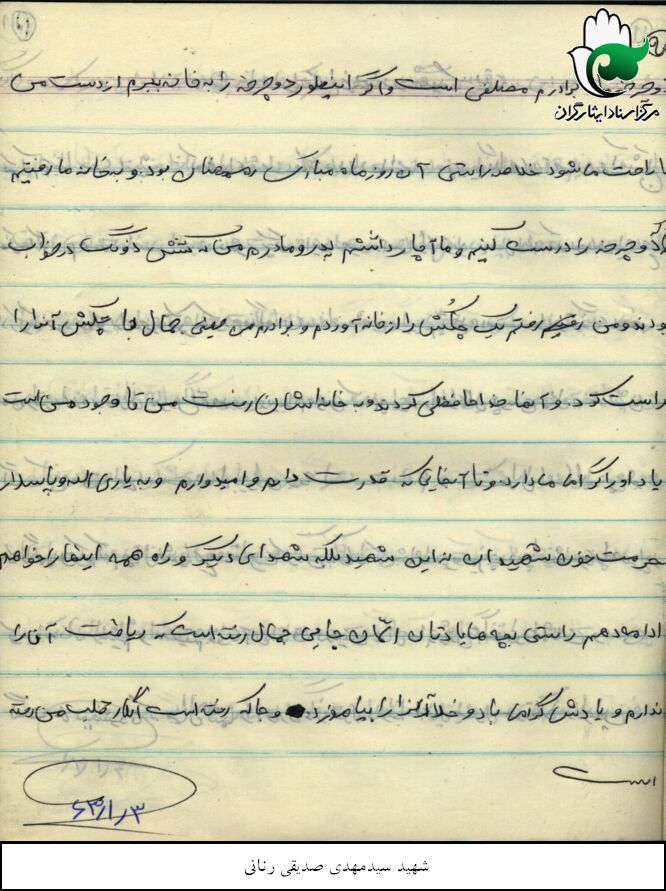 مرکز اسناد ایثارگران
دوچرخه برادرم مصطفی است و اگر اینطور دوچرخه را به خانه ببرم از دست من
ناراحت ما شود خلاصه راستی آن روز ماه مبارک رمضان بود. و به خانه ما رفتیم
دوچرخه را درست کنیم و ما آچار داشتم پدر و مادرم من که در خواب
بودند و من رفتم یک چکش را از خانه آوردم و برادرم من یعنی جمال با چکش آنرا
راست کرد. و آنها خداحافظی کردند و به خانه‌اشان رفت من تا وجود من است
یاد او را گرامی دارد. و تا آنجایی که قدرت دارم و امیدوارم و به یاری الله و پاسدار
حرمت خون شهیدان نه این شهید بلکه شهدای دیگر و راه همه اینها را خواهم
ادامه دهم راستی بچه ها یادتان جمال رفته است که لیاقت آنرا
ندارم و یادش گرامی باد و خدا را بیامرزد. و جا که رفته است انگار قلب من رفته
است
۶۳/۱/۳
شهید سیدمهدی صدیقی رنانی